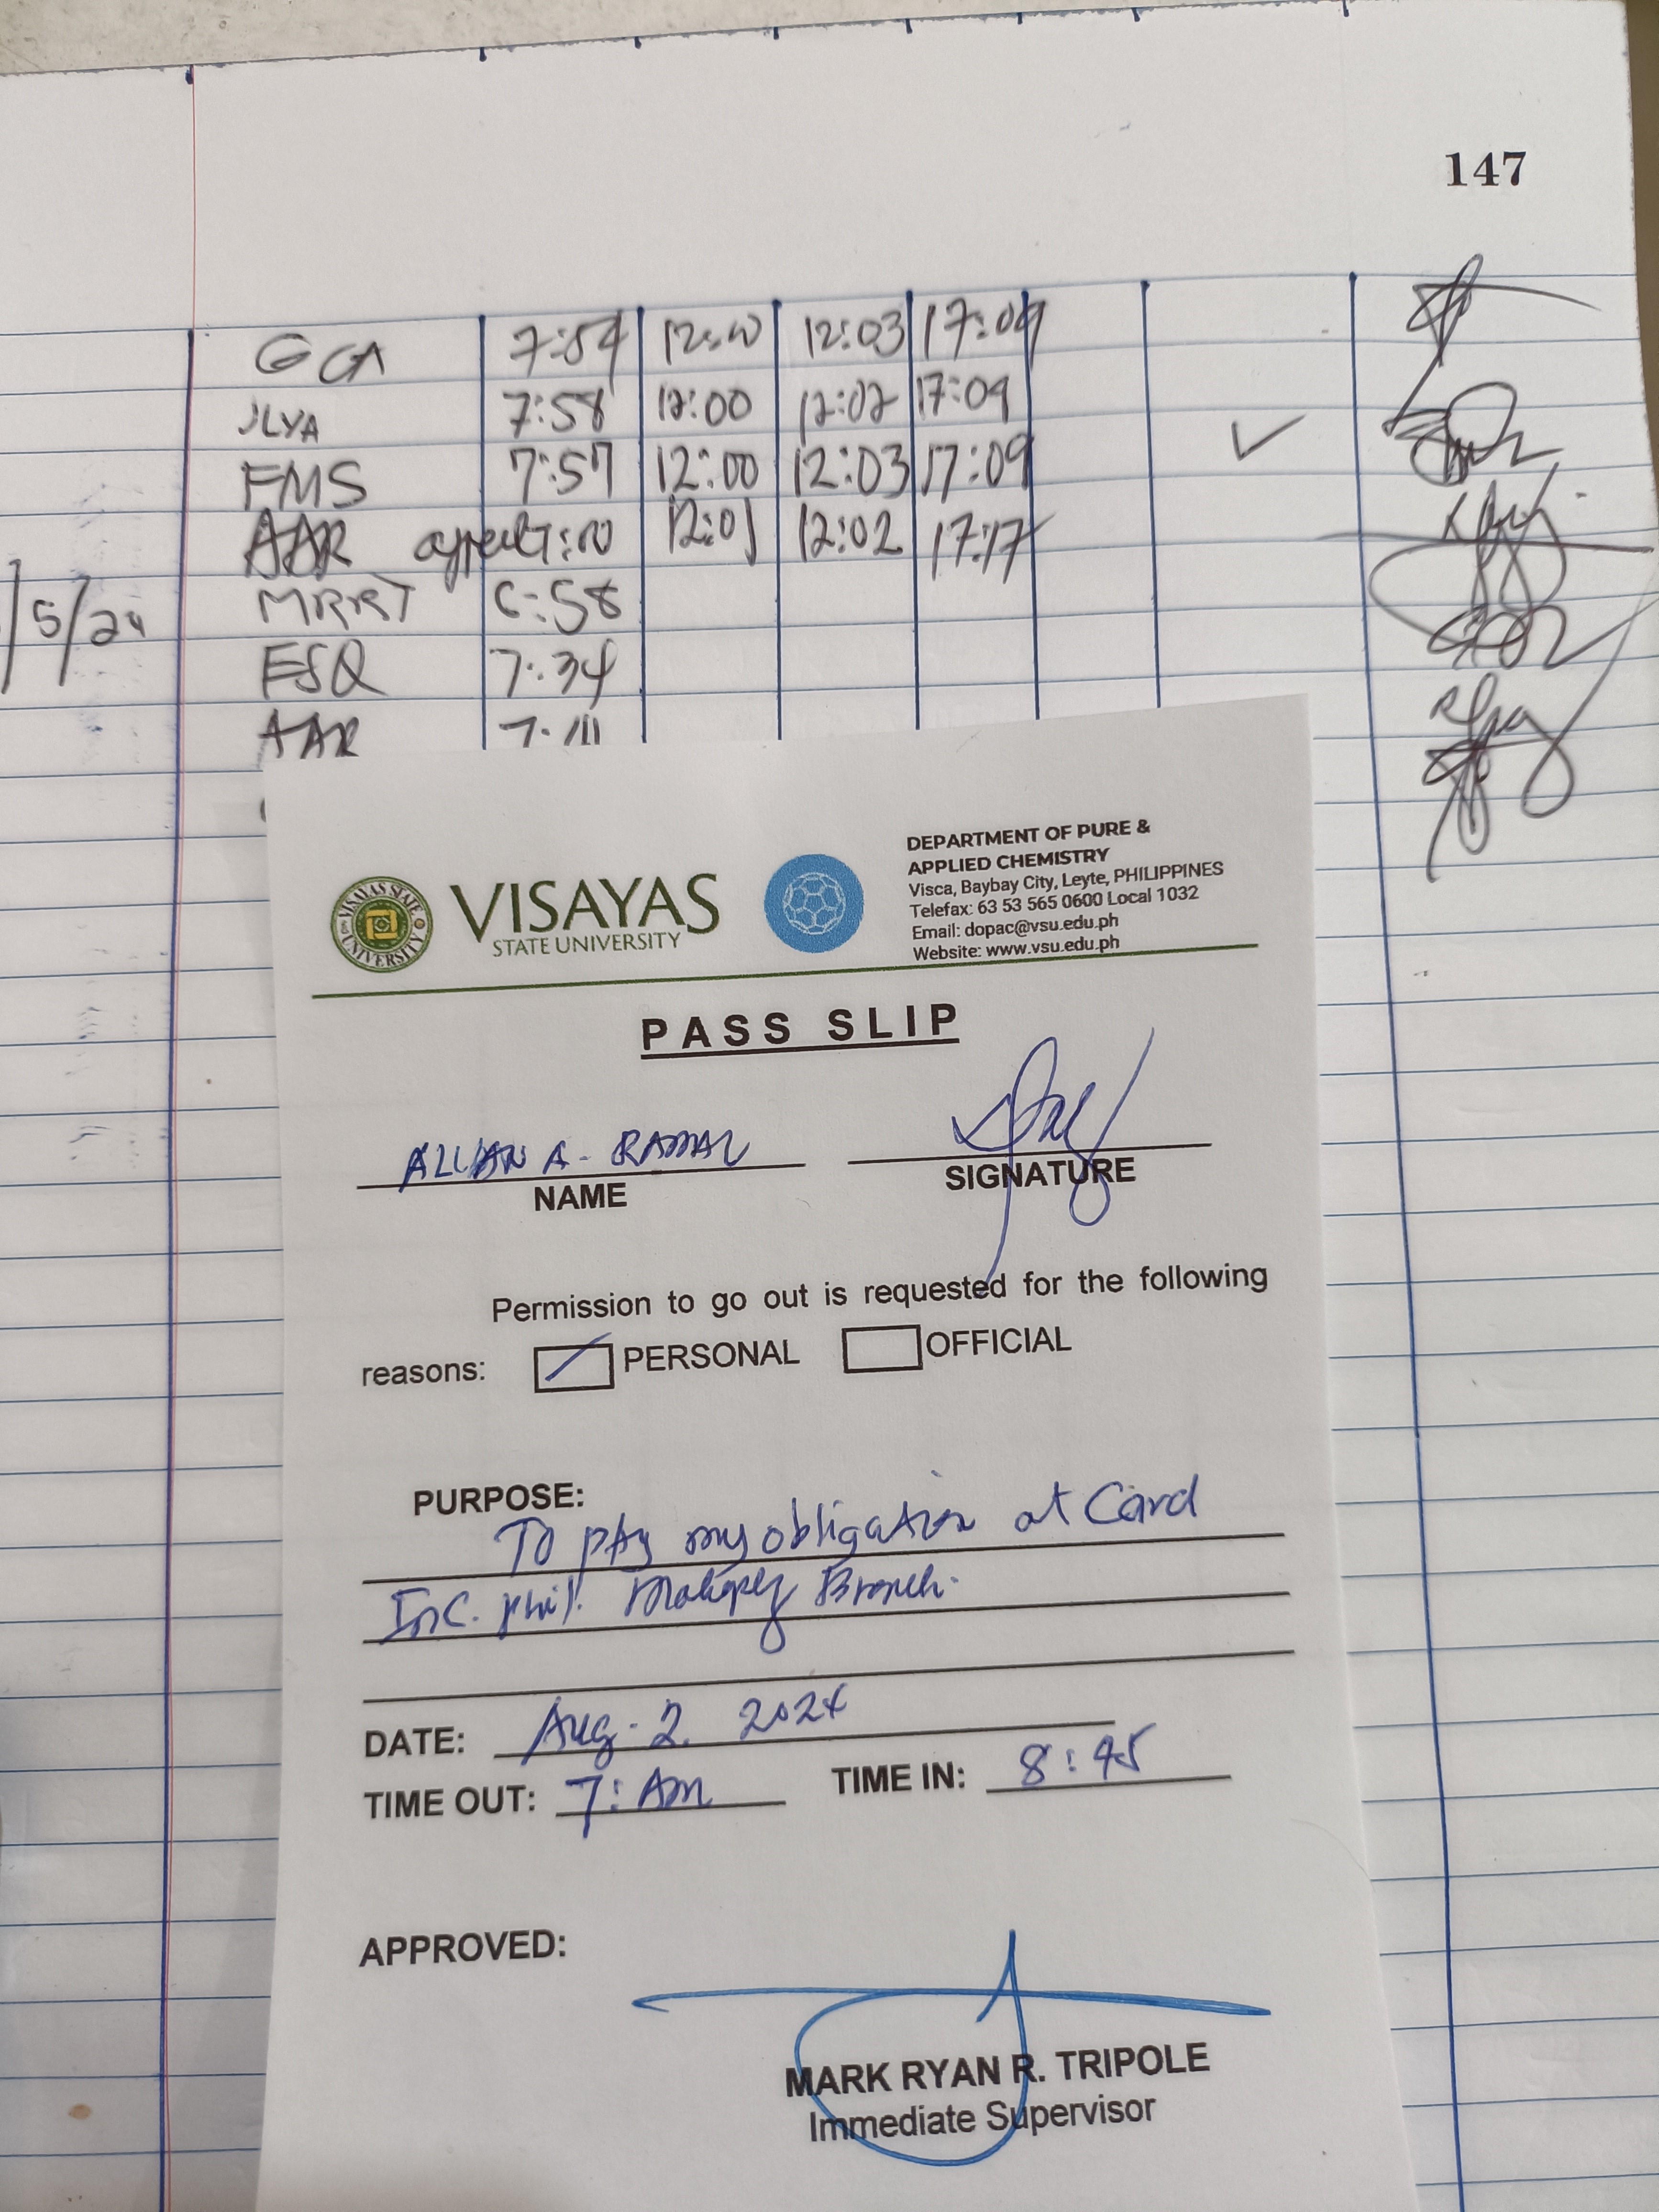 147
GCA 7:54 12:00 12:03 17:09
JLVA 7:58 12:00 12:02 17:09
FMS 7:57 12:00 12:03 17:09
AAR 7:00 12:01 12:02 17:17
/5/24 MRRT 6:58
ESQ 7:34
AAR
VISAYAS STATE UNIVERSITY
VISAYAS
STATE UNIVERSITY
DEPARTMENT OF PURE &
APPLIED CHEMISTRY
Visca, Baybay City, Leyte, PHILIPPINES
Telefax: 63 53 565 0600 Local 1032
Email: dopac@vsu.edu.ph
Website: www.vsu.edu.ph
PASS SLIP
ALLAN A.
NAME
SIGNATURE
Permission to go out is requested for the following
reasons: PERSONAL OFFICIAL
PURPOSE:
To pay my obligation at Card
Inc. phil. Branch.
DATE: Aug. 2. 2024
TIME OUT: 7: Am TIME IN: 8:45
APPROVED:
MARK RYAN R. TRIPOLE
Immediate Supervisor